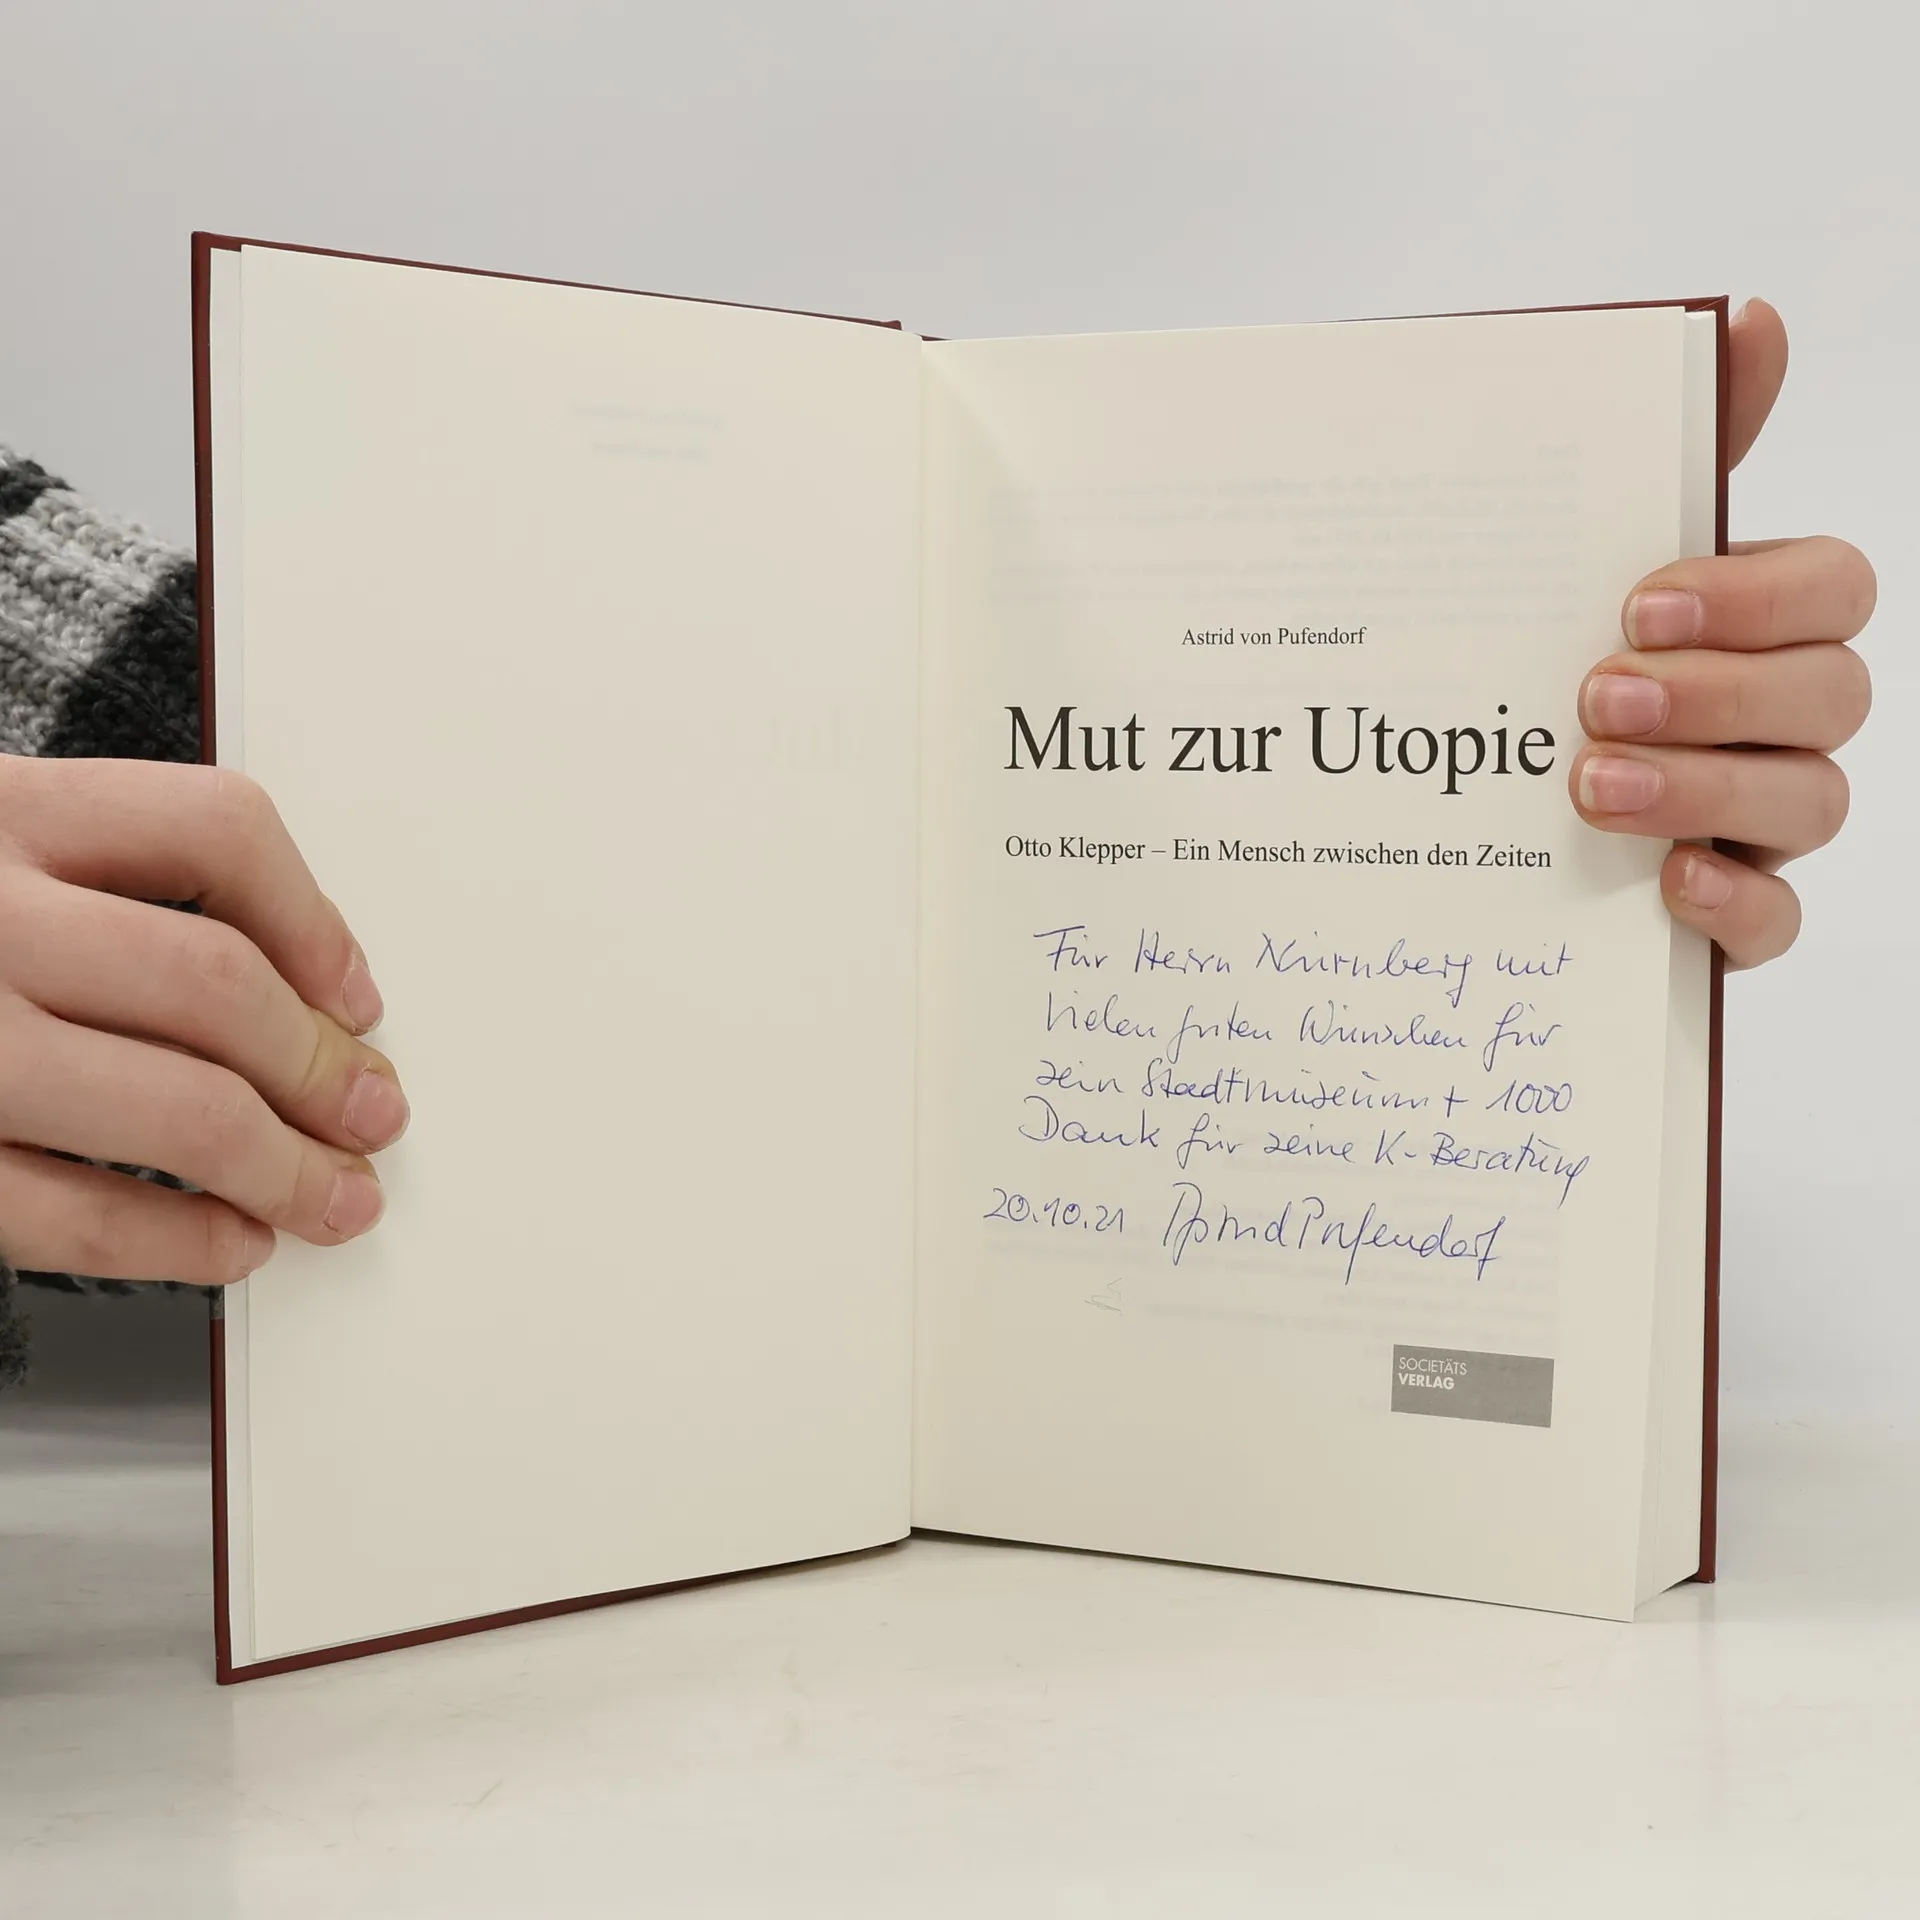 Astrid von Pufendorf
Mut zur Utopie
Otto Klepper – Ein Mensch zwischen den Zeiten
Für Herrn Nürnberg mit
vielen guten Wünschen für
sein Stadtmuseum + 1000
Dank für seine K-Beratung
20.10.21 Astrid Pufendorf
SOCIETÄTS
VERLAG